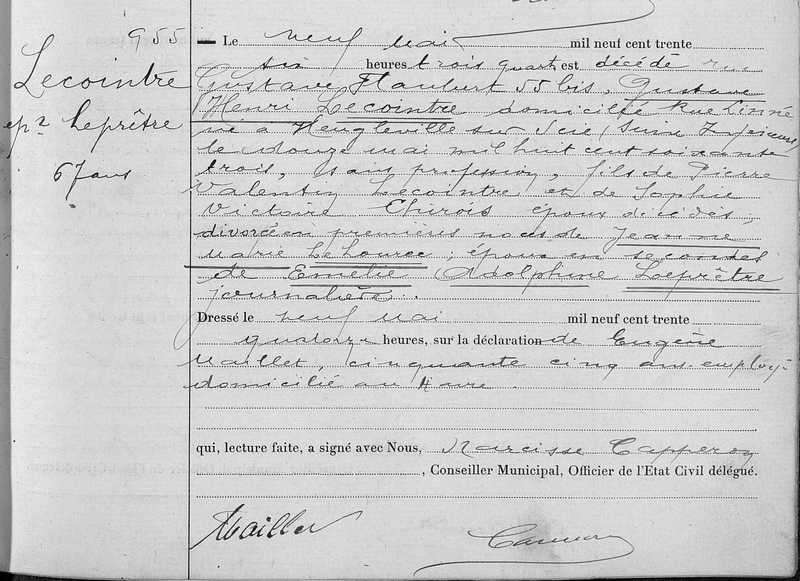 955
Lecointre
ep.x Leprêtre
67 ans
Le neuf Mai mil neuf cent trente
six heures trois quart est décédé rue
Gustave Flaubert 55 bis, Gustave
Henri Lecointre domicilié Rue Linné
né a Heugleville sur Scie (Seine Inférieure)
le douze mai mil huit cent soixante
trois, sans profession, fils de Pierre
Valentin Lecointre et de Sophie
Victoire époux décédés,
divorcé en premières noces de Jeanne
Marie Le ; époux en secondes
de Emelie Adolphine Leprêtre
journalière.
Dressé le neuf Mai mil neuf cent trente
quatorze heures, sur la déclaration de Eugène
Maillet, cinquante cinq ans employé
domicilié au Havre.
qui, lecture faite, a signé avec Nous, Narcisse Capperon
, Conseiller Municipal, Officier de l'Etat Civil délégué.
Maillet